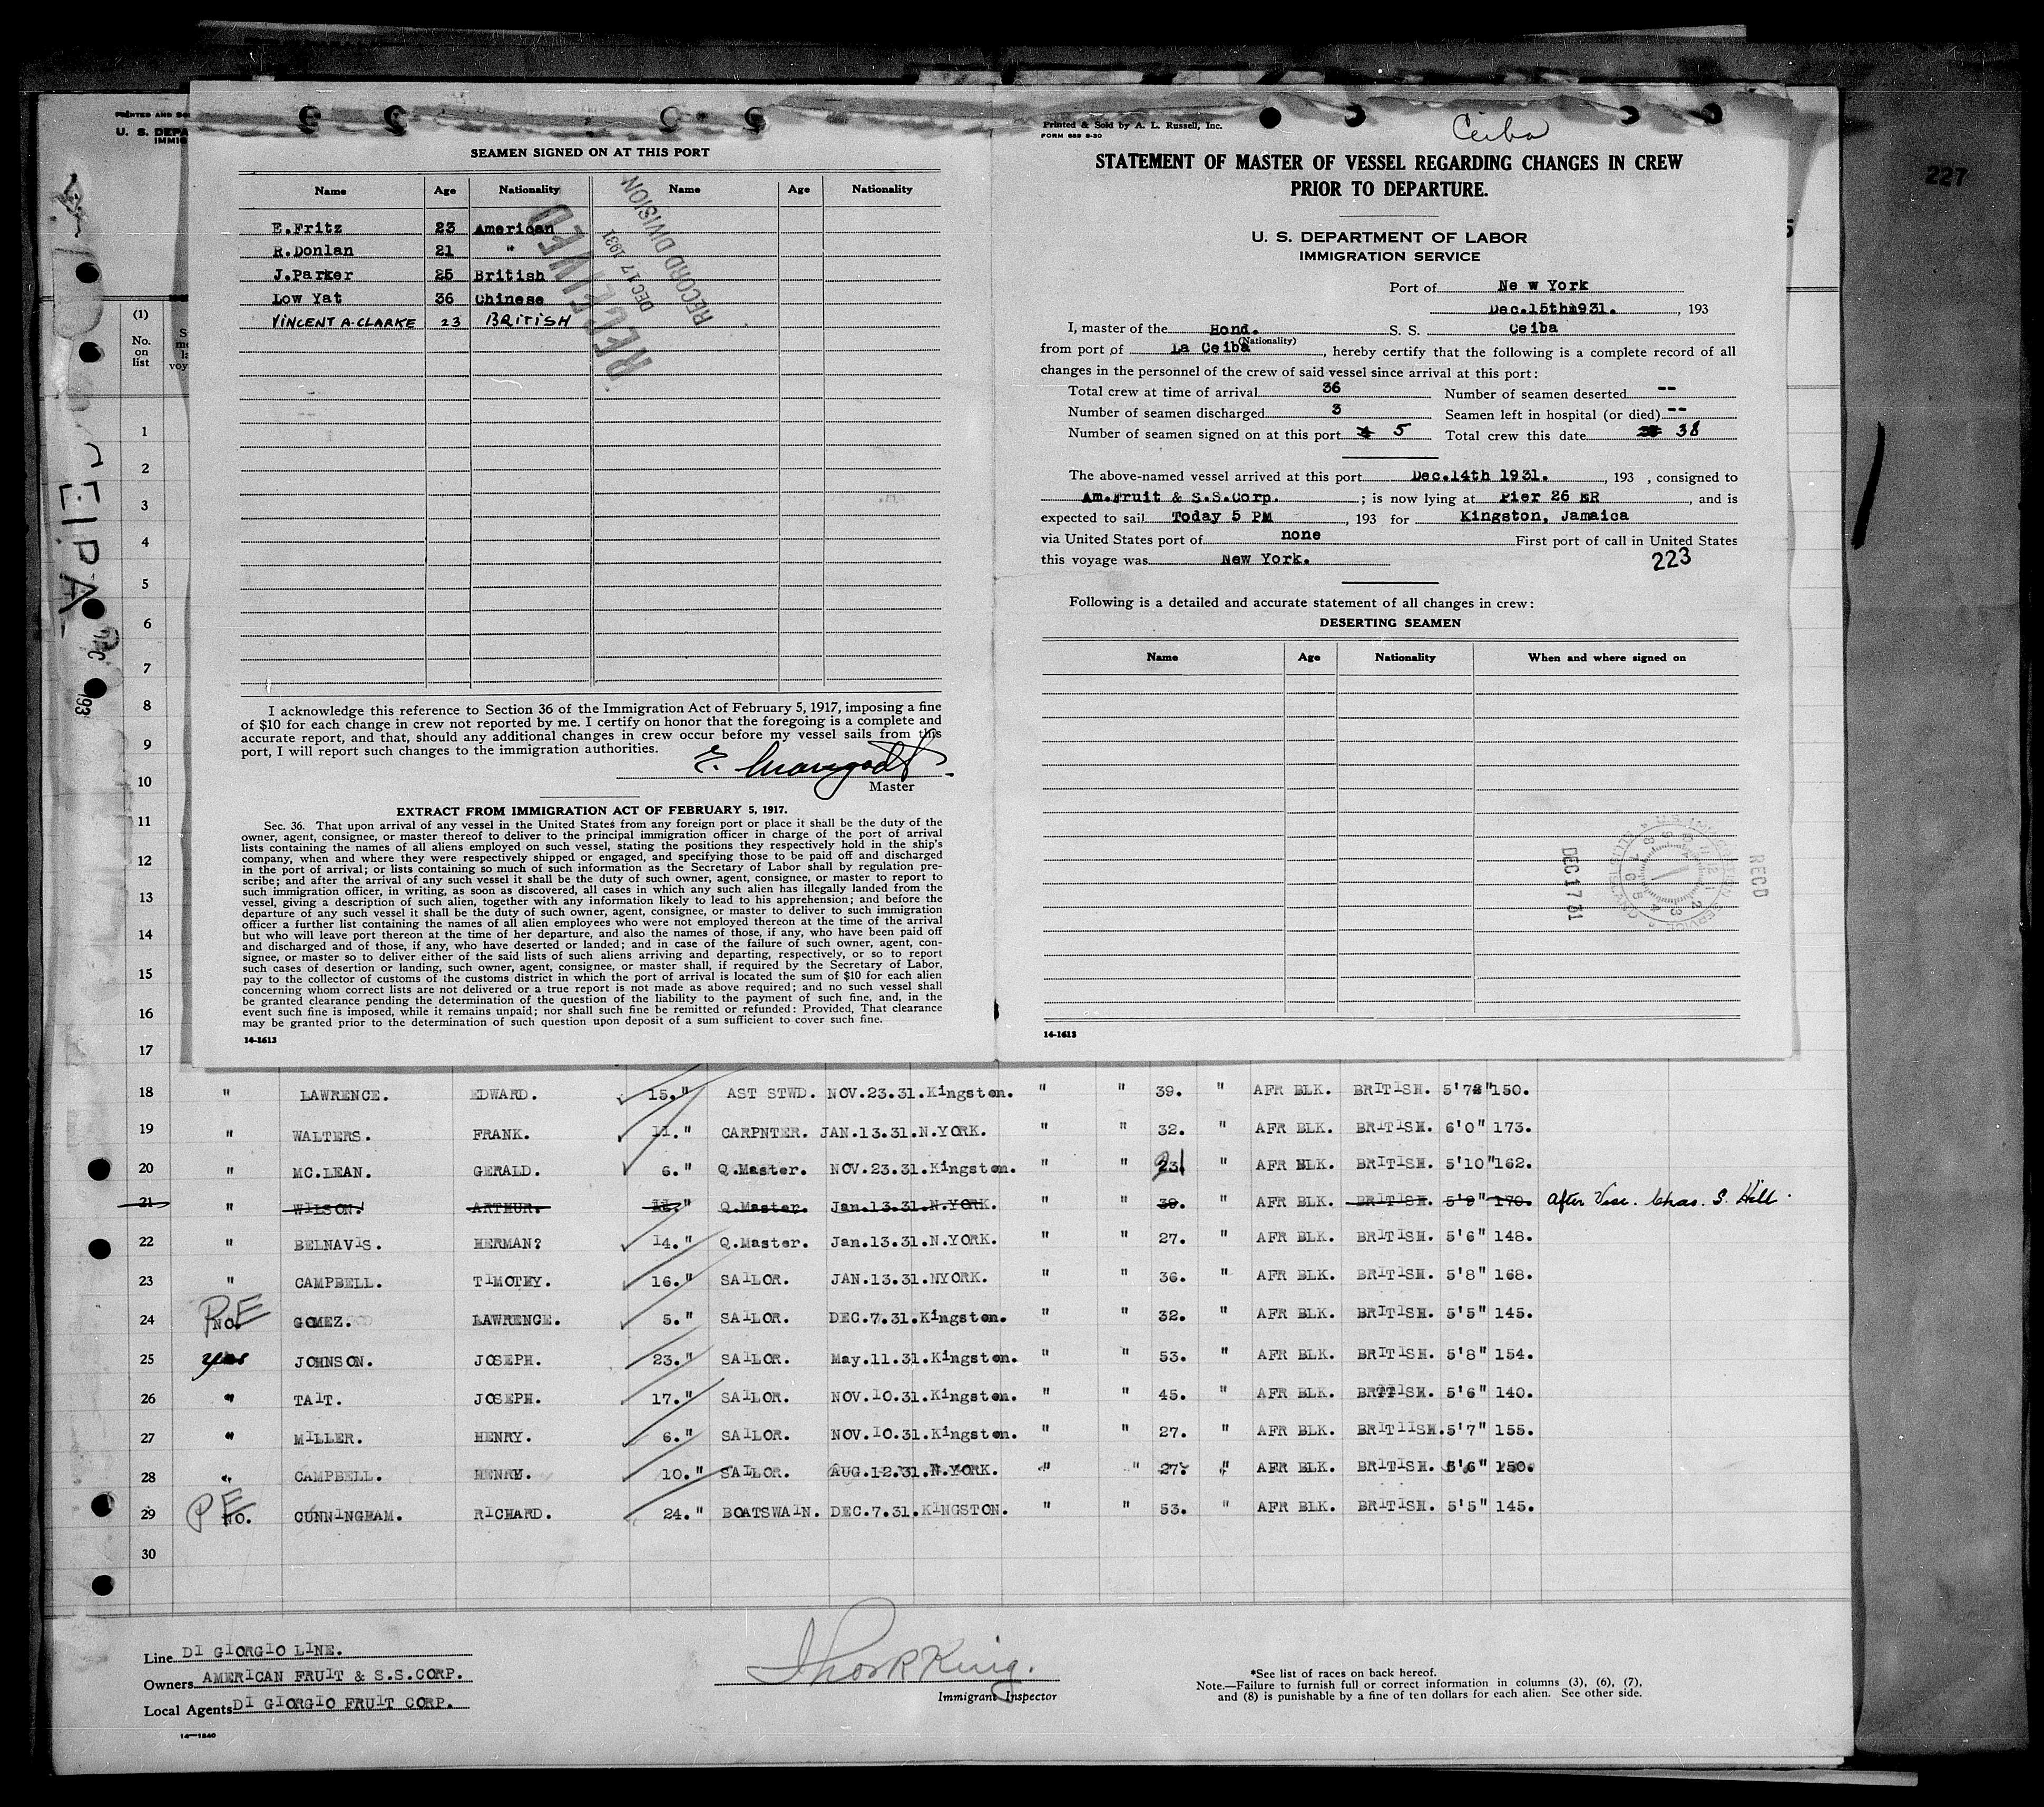 PRINTED AND SO
U. S. DEPA
IMMIG
227
SEAMEN SIGNED ON AT THIS PORT
Name Age Nationality Name Age Nationality
E.Fritz 23 American
R.Donlan 21 "
J.Parker 25 British
Low Yat 36 Chinese
VINCENT A. CLARKE 23 BRITISH
RECEIVED
DEC 17 1931
RECORD DIVISION
I acknowledge this reference to Section 36 of the Immigration Act of February 5, 1917, imposing a fine
of $10 for each change in crew not reported by me. I certify on honor that the foregoing is a complete and
accurate report, and that, should any additional changes in crew occur before my vessel sails from this
port, I will report such changes to the immigration authorities.
E.
Master
EXTRACT FROM IMMIGRATION ACT OF FEBRUARY 5, 1917.
Sec. 36. That upon arrival of any vessel in the United States from any foreign port or place it shall be the duty of the
owner, agent, consignee, or master thereof to deliver to the principal immigration officer in charge of the port of arrival
lists containing the names of all aliens employed on such vessel, stating the positions they respectively hold in the ship's
company, when and where they were respectively shipped or engaged, and specifying those to be paid off and discharged
in the port of arrival; or lists containing so much of such information as the Secretary of Labor shall by regulation pre-
scribe; and after the arrival of any such vessel it shall be the duty of such owner, agent, consignee, or master to report to
such immigration officer, in writing, as soon as discovered, all cases in which any such alien has illegally landed from the
vessel, giving a description of such alien, together with any information likely to lead to his apprehension; and before the
departure of any such vessel it shall be the duty of such owner, agent, consignee, or master to deliver to such immigration
officer a further list containing the names of all alien employees who were not employed thereon at the time of the arrival
but who will leave port thereon at the time of her departure, and also the names of those, if any, who have been paid off
and discharged and of those, if any, who have deserted or landed; and in case of the failure of such owner, agent, con-
signee, or master so to deliver either of the said lists of such aliens arriving and departing, respectively, or so to report
such cases of desertion or landing, such owner, agent, consignee, or master shall, if required by the Secretary of Labor,
pay to the collector of customs of the customs district in which the port of arrival is located the sum of $10 for each alien
concerning whom correct lists are not delivered or a true report is not made as above required; and no such vessel shall
be granted clearance pending the determination of the question of the liability to the payment of such fine, and, in the
event such fine is imposed, while it remains unpaid; nor shall such fine be remitted or refunded: Provided, That clearance
may be granted prior to the determination of such question upon deposit of a sum sufficient to cover such fine.
14-1613
Printed & Sold by A. L. Russell, Inc.
FORM 689 8-30
Ceiba
STATEMENT OF MASTER OF VESSEL REGARDING CHANGES IN CREW
PRIOR TO DEPARTURE.
U. S. DEPARTMENT OF LABOR
IMMIGRATION SERVICE
Port of Ne w York
Dec.15th1931. , 193
I, master of the Hond. S. S. Ceiba
(Nationality)
from port of La Ceiba , hereby certify that the following is a complete record of all
changes in the personnel of the crew of said vessel since arrival at this port:
Total crew at time of arrival 36 Number of seamen deserted --
Number of seamen discharged 3 Seamen left in hospital (or died) --
Number of seamen signed on at this port 5 Total crew this date 38
The above-named vessel arrived at this port Dec.14th 1931. , 193 , consigned to
Am.Fruit & S.S.Corp. ; is now lying at Pier 26 ER , and is
expected to sail Today 5 PM , 193 for Kingston, Jamaica
via United States port of none First port of call in United States
this voyage was New York.
223
Following is a detailed and accurate statement of all changes in crew:
DESERTING SEAMEN
Name Age Nationality When and where signed on
DEC 17 31
RECD
14-1613
(1)
No.
on
list
1
2
3
4
5
6
7
8
9
10
11
12
13
14
15
16
17
18 " LAWRENCE. EDWARD. 15." AST STWD. NOV.23.31.Kingston. " " 39. " AFR BLK. BRITISH. 5'7½"150.
19 " WALTERS. FRANK. 11." CARPNTER. JAN.13.31.N.YORK. " " 32. " AFR BLK. BRITISH. 6'0" 173.
20 " MC.LEAN. GERALD. 6." Q.Master. NOV.23.31.Kingston. " " 23 " AFR BLK. BRITISH. 5'10"162.
21 " WILSON. ARTHUR. 11." Q.Master. Jan.13.31.N.YORK. " " 39. " AFR BLK. BRITISH. 5'9" 170. After Vise. Chas. S. Hill
22 " BELNAVIS. HERMAN? 14." Q.Master. Jan.13.31.N.YORK. " " 27. " AFR BLK. BRITISH. 5'6" 148.
23 " CAMPBELL. TIMOTHY. 16." SAILOR. JAN.13.31.NYORK. " " 36. " AFR BLK. BRITISH. 5'8" 168.
24 NO. GOMEZ. LAWRENCE. 5." SAILOR. DEC.7.31.Kingston. " " 32. " AFR BLK. BRITISH. 5'5" 145.
25 yes JOHNSON. JOSEPH. 23." SAILOR. May.11.31.Kingston. " " 53. " AFR BLK. BRITISH. 5'8" 154.
26 " TAIT. JOSEPH. 17." SAILOR. NOV.10.31.Kingston. " " 45. " AFR BLK. BRITISH. 5'6" 140.
27 " MILLER. HENRY. 6." SAILOR. NOV.10.31.Kingston. " " 27. " AFR BLK. BRITIISH.5'7" 155.
28 " CAMPBELL. HENRY. 10." SAILOR. AUG.12.31.N.YORK. " " 27. " AFR BLK. BRITISH. 5'6" 150.
29 NO. CUNNINGHAM. RICHARD. 24." BOATSWAIN. DEC.7.31.KINGSTON. " " 53. " AFR BLK. BRITISH. 5'5" 145.
30
Line DI GIORGIO LINE.
Owners AMERICAN FRUIT & S.S.CORP.
Local Agents DI GIORGIO FRUIT CORP.
14-1240
Thor R King.
Immigrant Inspector
*See list of races on back hereof.
Note.—Failure to furnish full or correct information in columns (3), (6), (7),
and (8) is punishable by a fine of ten dollars for each alien. See other side.